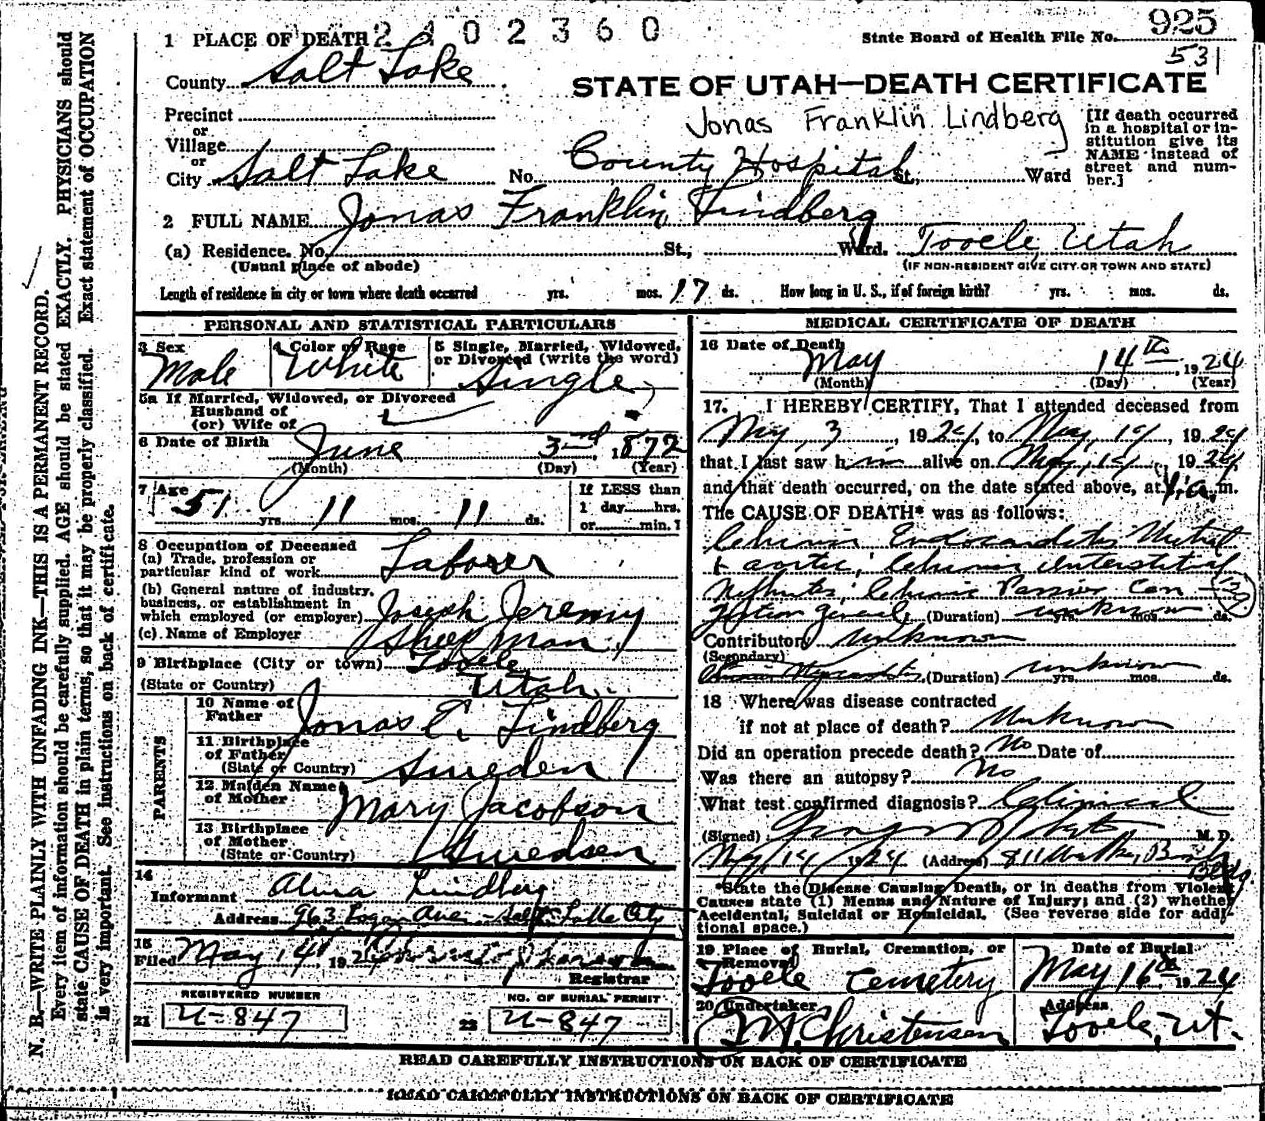 2402360
925
State Board of Health File No.
531
1 PLACE OF DEATH
County Salt Lake
STATE OF UTAH—DEATH CERTIFICATE
Precinct
or
Village
or
City Salt Lake No. County Hospital St., Ward
Jonas Franklin Lindberg
[If death occurred in a hospital or in-
stitution give its
NAME instead of
street and num-
ber.]
2 FULL NAME Jonas Franklin Lindberg
(a) Residence. No. St., Ward. Tooele, Utah
(Usual place of abode) (IF NON-RESIDENT GIVE CITY OR TOWN AND STATE)
Length of residence in city or town where death occurred yrs. mos. 17 ds. How long in U. S., if of foreign birth? yrs. mos. ds.
PERSONAL AND STATISTICAL PARTICULARS
3 Sex Male
4 Color or Race White
5 Single, Married, Widowed,
or Divorced (write the word)
Single
5a If Married, Widowed, or Divorced
Husband of
(or) Wife of
6 Date of Birth June 3rd, 1872
(Month) (Day) (Year)
7 Age 51 yrs. 11 mos. 11 ds.
If LESS than
1 day hrs.
or min. ?
8 Occupation of Deceased
(a) Trade, profession or
particular kind of work Laborer
(b) General nature of industry,
business, or establishment in
which employed (or employer) Joseph Jeremy
(c) Name of Employer Sheep man
9 Birthplace (City or town) Tooele
(State or Country) Utah
PARENTS
10 Name of
Father Jonas E. Lindberg
11 Birthplace
of Father
(State or Country) Sweden
12 Maiden Name
of Mother Mary Jacobson
13 Birthplace
of Mother
(State or Country) Sweden
14
Informant Alma Lindberg
Address 963 Logan Ave - Salt Lake City
15
Filed May 14 1924
Registrar
REGISTERED NUMBER
21 U-847
NO. OF BURIAL PERMIT
22 U-847
MEDICAL CERTIFICATE OF DEATH
16 Date of Death
May 14th, 1924
(Month) (Day) (Year)
17. I HEREBY CERTIFY, That I attended deceased from
May, 3, 1924, to May, 14, 1924
that I last saw him alive on May, 14, 1924
and that death occurred, on the date stated above, at 1.a.m.
The CAUSE OF DEATH* was as follows:
Chronic Endocarditis Mitral
+ aortic, Chronic Interstitial
Nephritis, Chronic Passive Con-
gestion General, (Duration) unknown yrs. mos. ds.
Contributory Unknown
(Secondary)
Chronic Myocarditis (Duration) unknown yrs. mos. ds.
18 Where was disease contracted
if not at place of death? Unknown
Did an operation precede death? No Date of
Was there an autopsy? No
What test confirmed diagnosis? Clinical
(Signed) M. D.
May 14, 1924 (Address) 811 Bldg.
*State the Disease Causing Death, or in deaths from Violent
Causes state (1) Means and Nature of Injury; and (2) whether
Accidental, Suicidal or Homicidal. (See reverse side for addi-
tional space.)
19 Place of Burial, Cremation, or
Removal
Tooele Cemetery
Date of Burial
May 16th, 1924
20 Undertaker
Christensen
Address
Tooele, Ut.
READ CAREFULLY INSTRUCTIONS ON BACK OF CERTIFICATE
READ CAREFULLY INSTRUCTIONS ON BACK OF CERTIFICATE
N. B.—WRITE PLAINLY WITH UNFADING INK—THIS IS A PERMANENT RECORD.
Every item of information should be carefully supplied. AGE should be stated EXACTLY. PHYSICIANS should
state CAUSE OF DEATH in plain terms, so that it may be properly classified. Exact statement of OCCUPATION
is very important. See instructions on back of certificate.